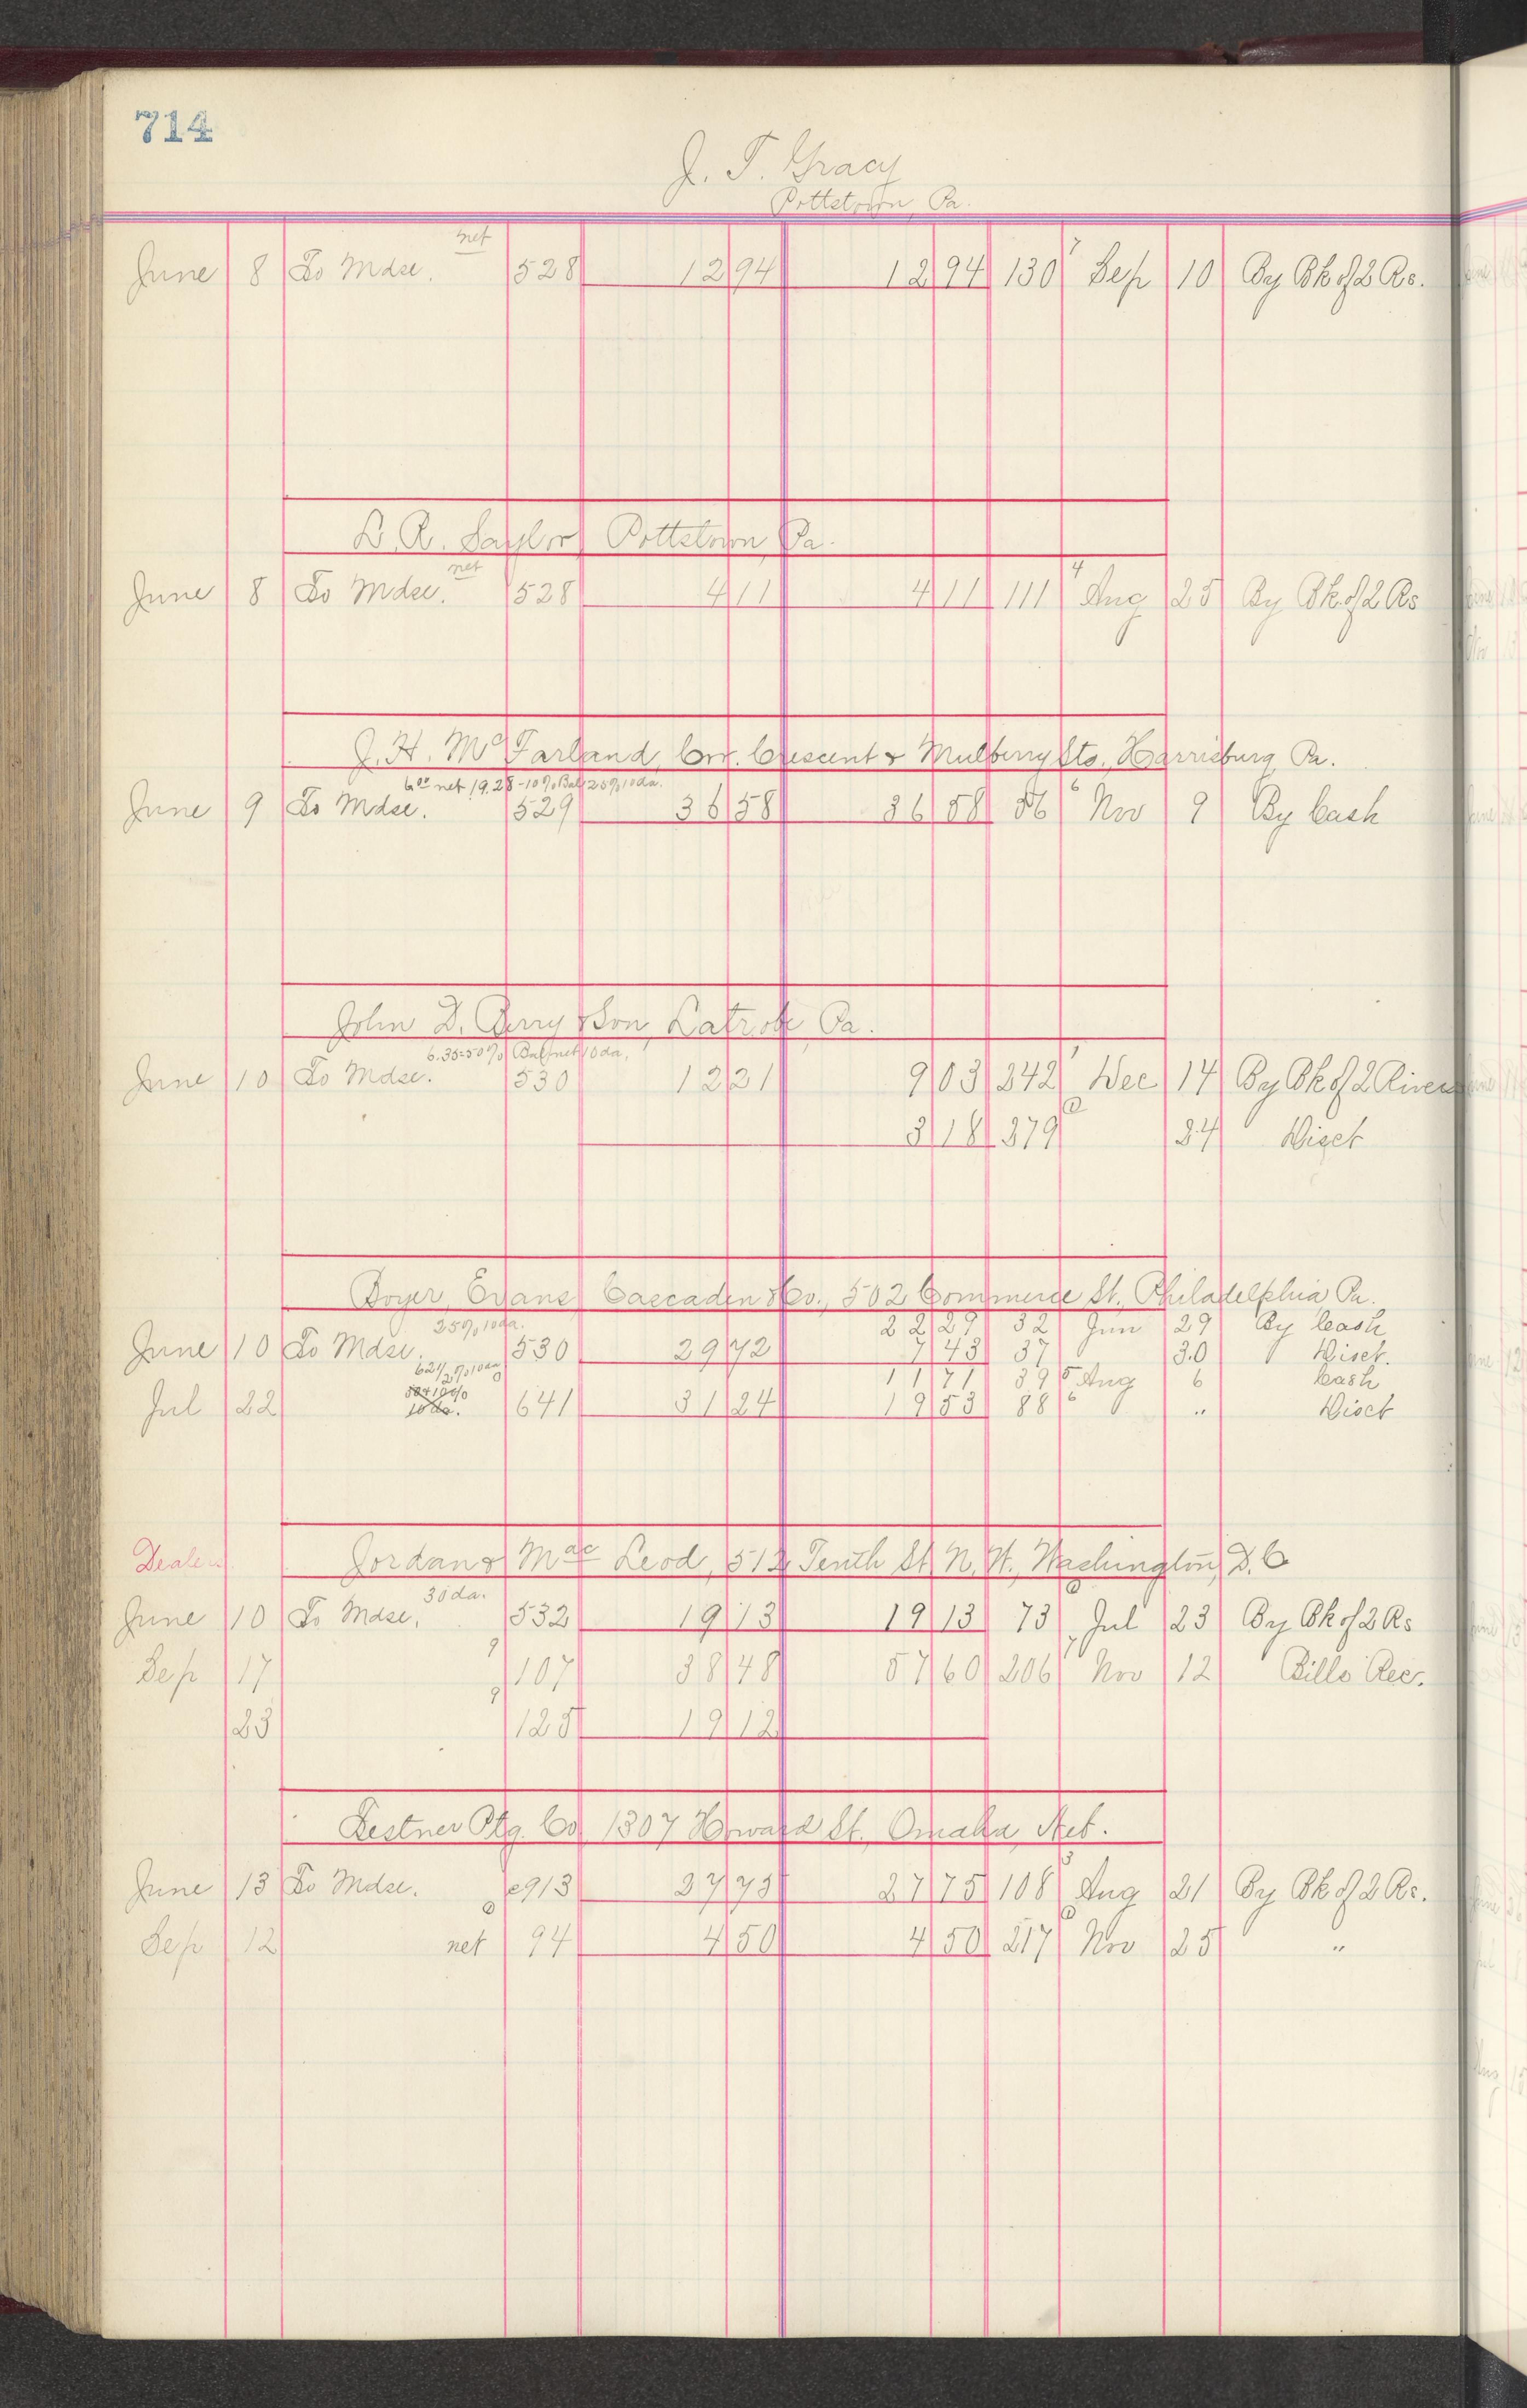 714
J. T. Gracy
Pottstown, Pa.
net
June 8 To Mdse. 528 12 94 12 94 130 7 Sep 10 By Bk of 2 Rs.
L. R. Saylor Pottstown Pa.
net
June 8 To Mdse. 528 4 11 4 11 111 4 Aug 25 By Bk. of 2 Rs
J. H. McFarland, Cor. Crescent & Mulberry Sts., Harrisburg, Pa.
6 00 net 19.28 - 10% Bal 25% 10 da.
June 9 To Mdse. 529 36 58 36 58 56 6 Nov 9 By Cash
John D. Berry & Son, Latrobe Pa.
6.35 = 50% Bal net 10 da.
June 10 To Mdse. 530 12 21 9 03 242 1 Dec 14 By Bk of 2 Rivers
3 18 379 24 Disct
Boyer, Evans Cascaden & Co., 502 Commerce St., Philadelphia, Pa.
25% 10 da. 22 29 32 Jun 29 By Cash
June 10 To Mdse. 530 29 72 7 43 37 30 Disct.
62 1/2 % 10 da 11 71 39 5 Aug 6 Cash
Jul 22 50 & 10% 10 da. 641 31 24 19 53 88 6 " Disct
Dealer. Jordan & MacLeod, 512 Tenth St. N. W., Washington, D. C
30 da.
June 10 To Mdse. 532 19 13 19 13 73 Jul 23 By Bk of 2 Rs
Sep 17 9 107 38 48 57 60 206 7 Nov 12 Bills Rec.
23 9 125 19 12
Festner Ptg. Co 1307 Howard St., Omaha, Neb.
June 13 To Mdse. e913 27 75 27 75 108 3 Aug 21 By Bk of 2 Rs.
Sep 12 net 94 4 50 4 50 217 Nov 25 "